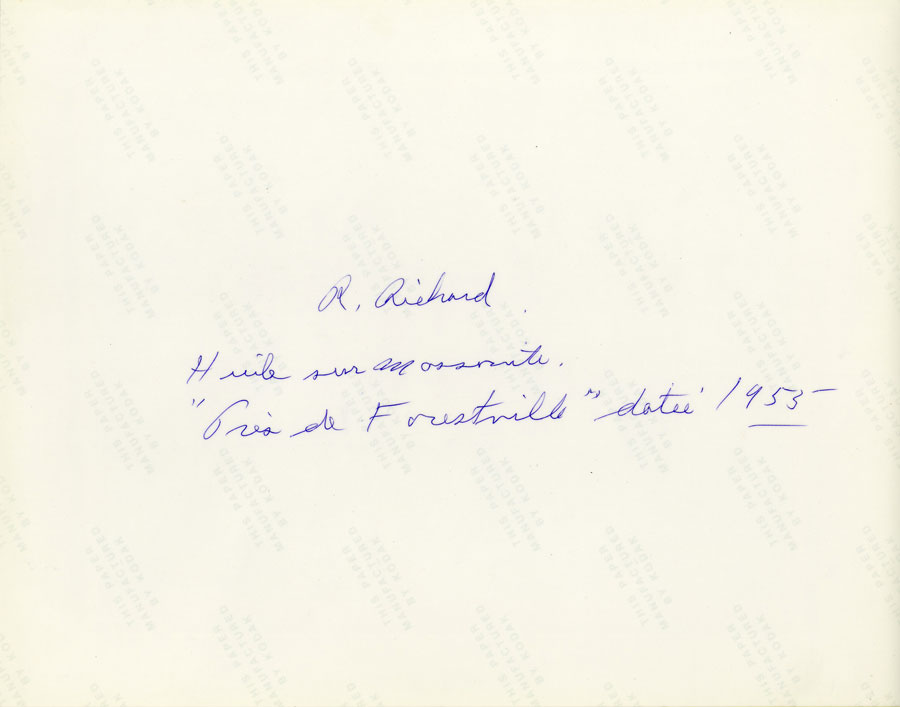 R. Richard.
Huile sur massonite.
"Près de Forestville" datée 1955
THIS PAPER
MANUFACTURED
BY KODAK